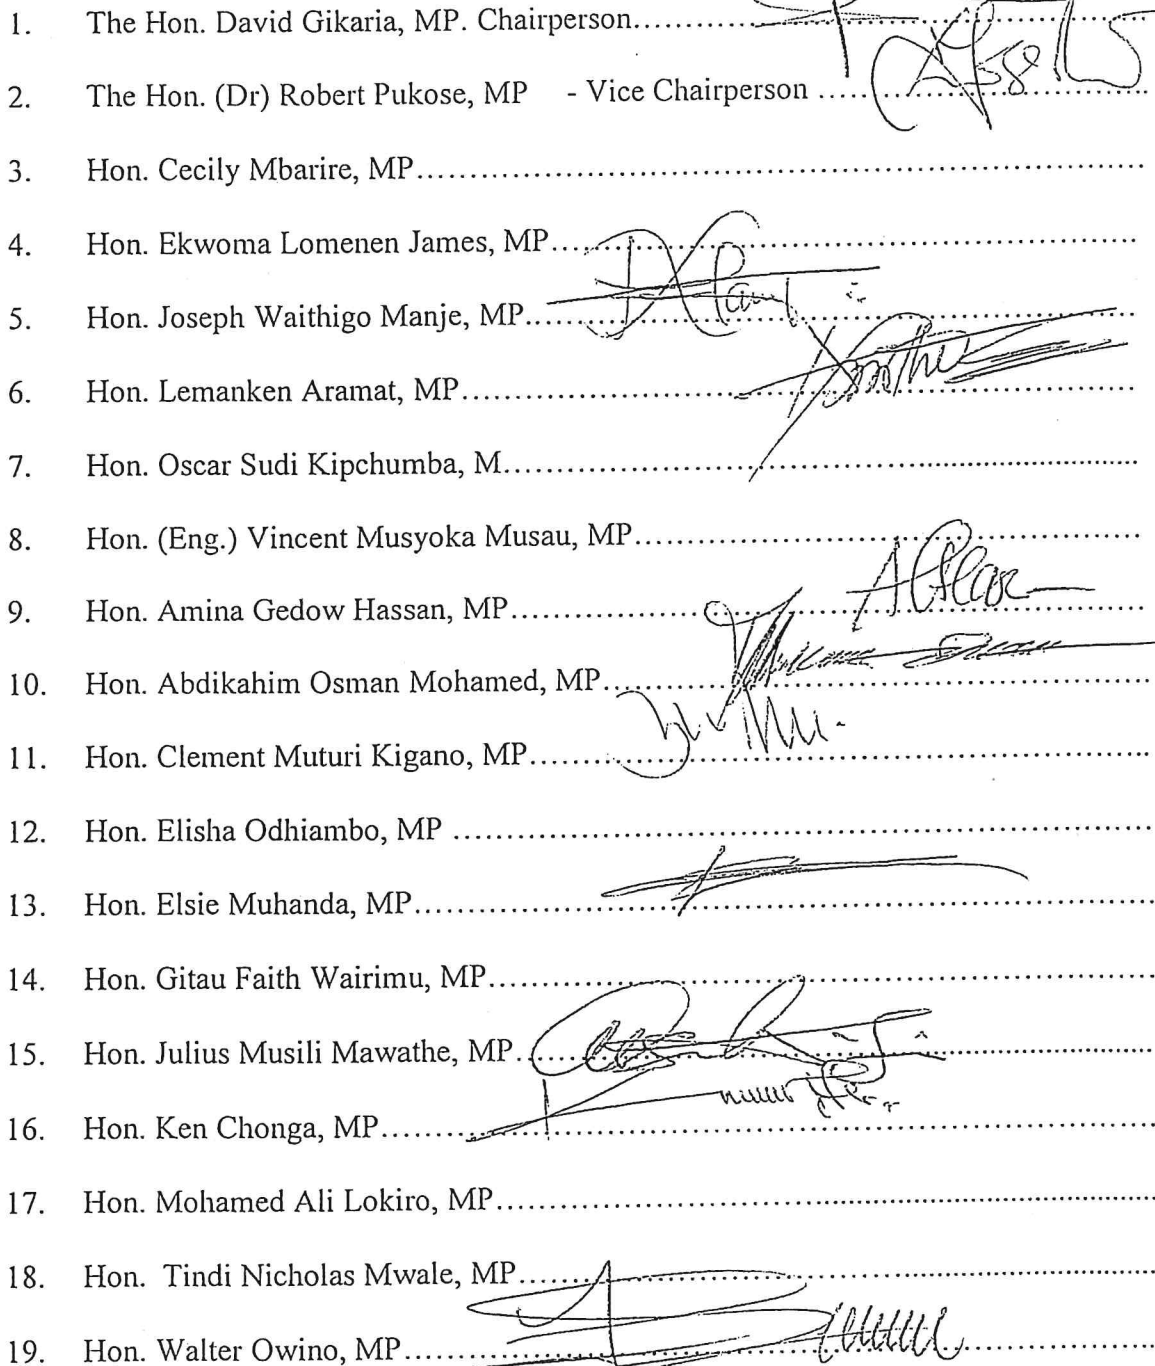 1. The Hon. David Gikaria, MP. Chairperson....................
2. The Hon. (Dr) Robert Pukose, MP - Vice Chairperson ....................
3. Hon. Cecily Mbarire, MP....................
4. Hon. Ekwoma Lomenen James, MP....................
5. Hon. Joseph Waithigo Manje, MP....................
6. Hon. Lemanken Aramat, MP....................
7. Hon. Oscar Sudi Kipchumba, M....................
8. Hon. (Eng.) Vincent Musyoka Musau, MP....................
9. Hon. Amina Gedow Hassan, MP....................
10. Hon. Abdikahim Osman Mohamed, MP....................
11. Hon. Clement Muturi Kigano, MP....................
12. Hon. Elisha Odhiambo, MP ....................
13. Hon. Elsie Muhanda, MP....................
14. Hon. Gitau Faith Wairimu, MP....................
15. Hon. Julius Musili Mawathe, MP....................
16. Hon. Ken Chonga, MP....................
17. Hon. Mohamed Ali Lokiro, MP....................
18. Hon. Tindi Nicholas Mwale, MP....................
19. Hon. Walter Owino, MP....................